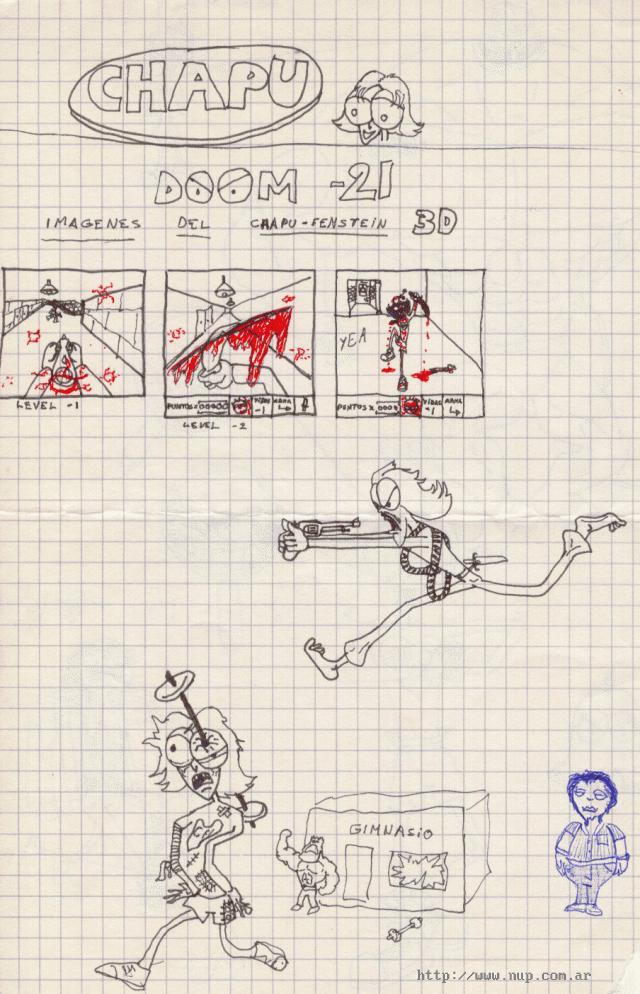 CHAPU
DOOM -21
IMAGENES DEL CHAPU-FENSTEIN 3D
YEA
LEVEL -1
PUNTOS
VIDAS
-1
ARMA
LEVEL -2
PUNTOS
VIDAS
-1
ARMA
GIMNASIO
http://www.nup.com.ar